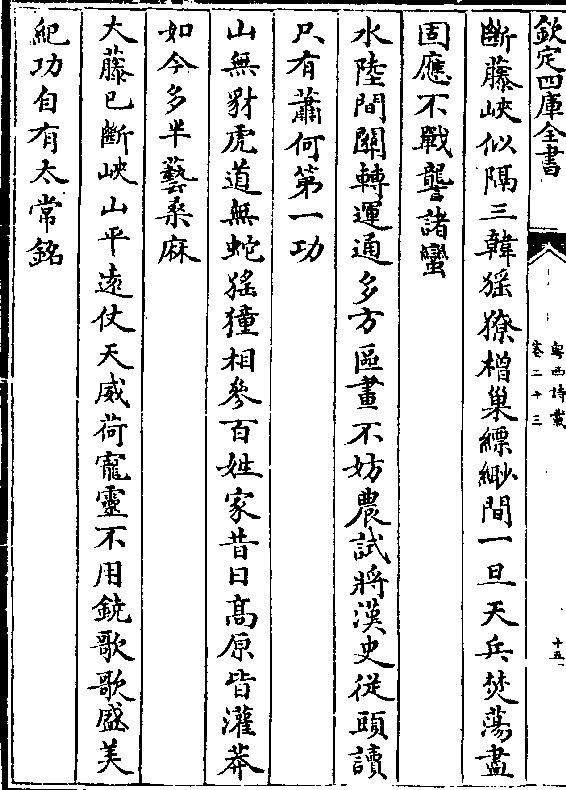 欽定四庫全書
粤西詩載
卷二十三
十五
斷藤峽似隔三韓猺獠橧巢縹緲間一旦天兵焚蕩盡
固應不戰讋諸蠻
水陸間關轉運通多方區畫不妨農試將漢史從頭讀
只有蕭何第一功
山無豺虎道無蛇猺獞相參百姓家昔日髙原皆灌莽
如今多半藝桑麻
大藤已斷峽山平遠仗天威荷寵靈不用鐃歌歌盛美
紀功自有太常銘